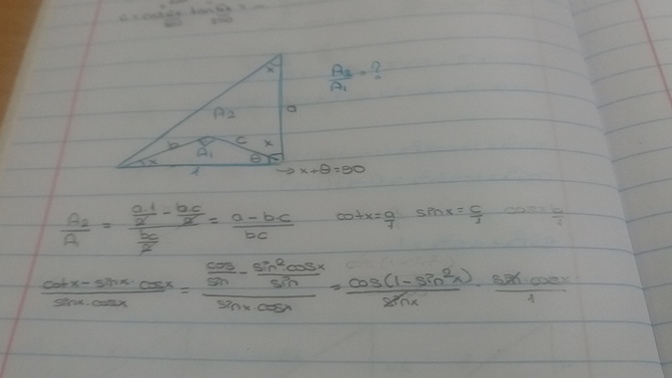 x
A2/A1 = ?
A2
a
b
c
x
A1
x
θ
1
→ x+θ=90
A2/A = (a.1/2 - b.c/2)/(bc/2) = (a-b.c)/bc cotx=a/1 sinx=c/1
(cotx-sinx.cosx)/(sinx.cosx) = (cos/sin - sin².cosx/sin)/(sinx.cosx) = cos(1-sin²x)/sinx . sinx.cosx/1